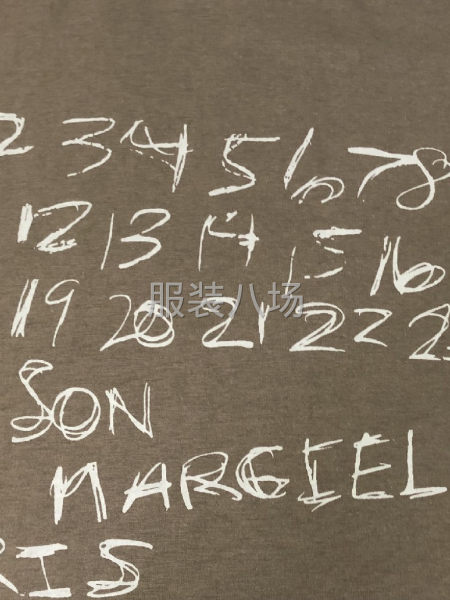 2 3 4 5 6 7 8
12 13 14 15 16
服装八场
19 20 21 22 2
SON
MARGIEL
RIS